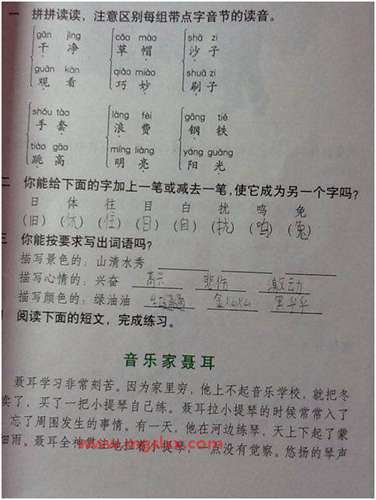 一 拼拼读读，注意区别每组带点字音节的读音。
gān jìng cǎo mào shā zi
干 净 草 帽 沙 子
guān kàn qiǎo miào shuā zi
观 看 巧 妙 刷 子
shǒu tào làng fèi gāng tiě
手 套 浪 费 钢 铁
tiào gāo míng liàng yáng guāng
跳 高 明 亮 阳 光
二 你能给下面的字加上一笔或减去一笔，使它成为另一个字吗？
日 体 往 目 白 扰 鸣 免
(旧) (休) (住) (日) (自) ( ) (呜) (兔)
三 你能按要求写出词语吗？
描写景色的：山清水秀
描写心情的：兴奋 高兴 悲伤 激动
描写颜色的：绿油油 金灿灿 黑乎乎
阅读下面的短文，完成练习。
音乐家聂耳
聂耳学习非常刻苦。因为家里穷，他上不起音乐学校，就把冬
卖了，买了一把小提琴自己练。聂耳拉小提琴的时候常常入了
忘了周围发生的事情。有一天，他在河边练琴，天上下起了蒙
细雨。聂耳全神贯注地拉着小提琴，一点没有觉察。悠扬的琴声